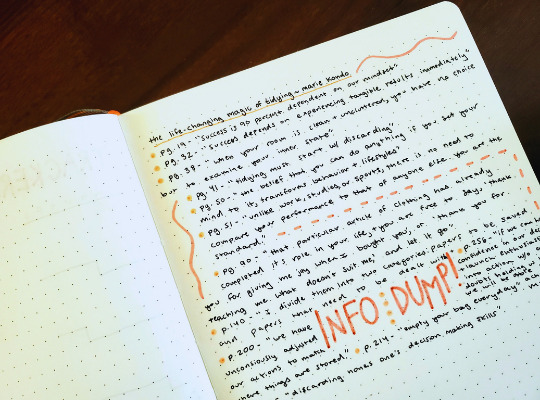 the life-changing magic of tidying - marie kondo
pg. 19 - "success is 90 percent dependent on our mindset"
pg. 32 - "success depends on experiencing tangible results immediately"
pg. 38 - "when your room is clean + uncluttered, you have no choice
but to examine your inner state"
pg. 41 - "tidying must start w/ discarding"
pg. 50 - "the belief that you can do anything if you set your
mind to it, transforms behavior + lifestyles"
pg. 51 - "unlike work, studies, or sports, there is no need to
compare your performance to that of anyone else. you are the
standard."
pg. 90 - "that particular article of clothing had already
completed it's role in your life, + you are free to say, 'thank
you for giving me joy when I bought you,' or 'thank you for
teaching me what doesn't suit me,' and let it go."
p. 140 - "I divide them into two categories: papers to be saved
and papers that need to be dealt with"
p. 200 - "we have
unconsciously adjusted
our actions to match
where things are stored."
INFO DUMP!
p. 256 - "if we can
confidence in our
enthusias
into action, w/o
doubts
we will be
p. 214 - "empty your bag everyday"
"discarding hones one's decision making skills"